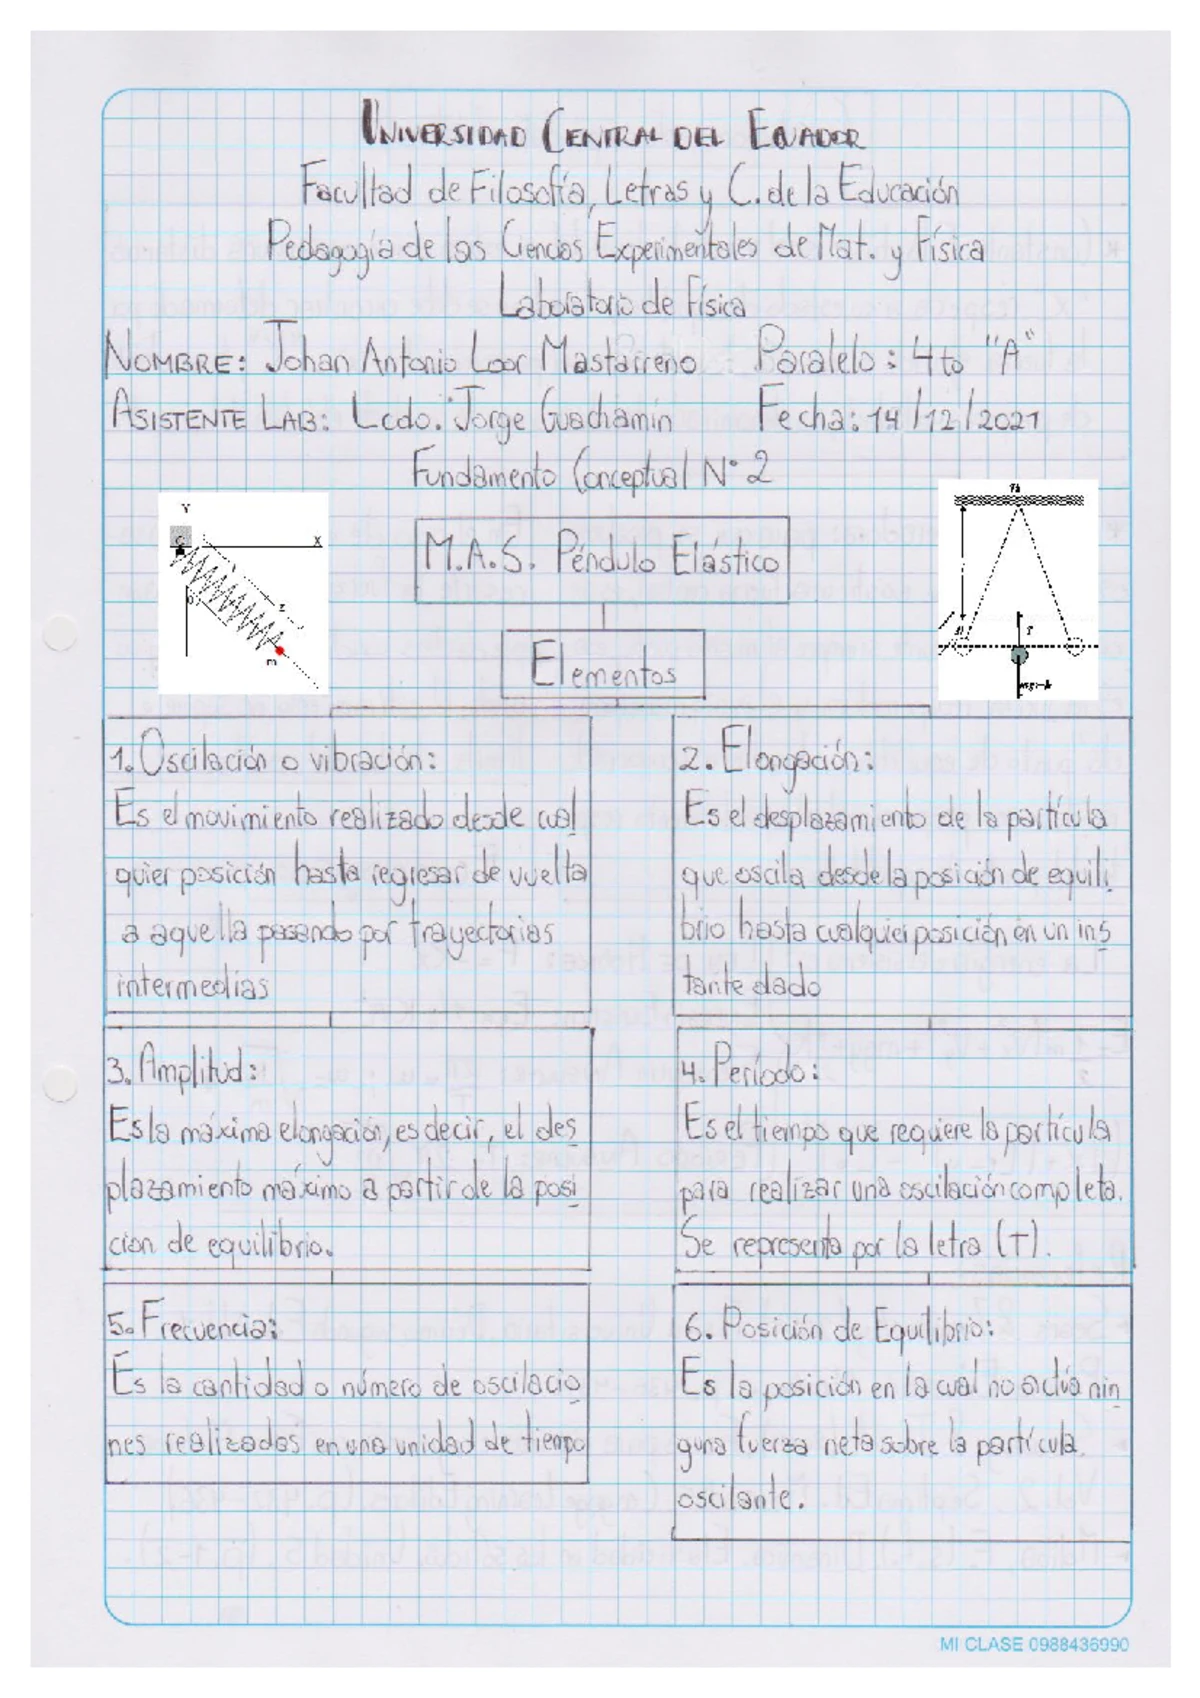 UNIVERSIDAD CENTRAL DEL ECUADOR
Facultad de Filosofía, Letras y C. de la Educación
Pedagogía de las Ciencias Experimentales de Mat. y Física
Laboratorio de Física
NOMBRE: Johan Antonio Loor Mastarreno Paralelo: 4to "A"
ASISTENTE LAB: Lcdo. Jorge Guachamin Fecha: 14/12/2021
Fundamento Conceptual N° 2
M.A.S. Péndulo Elástico
Elementos
Y
X
m
1. Oscilación o vibración:
Es el movimiento realizado desde cual
quier posición hasta regresar de vuelta
a aquella pasando por trayectorias
intermedias
2. Elongación:
Es el desplazamiento de la partícula
que oscila desde la posición de equili
brio hasta cualquier posición en un ins
tante dado
3. Amplitud:
Es la máxima elongación, es decir, el des
plazamiento máximo a partir de la posi
cion de equilibrio.
4. Período:
Es el tiempo que requiere la partícula
para realizar una oscilación completa.
Se representa por la letra (T).
5. Frecuencia:
Es la cantidad o número de oscilacio
nes realizadas en una unidad de tiempo
6. Posición de Equilibrio:
Es la posición en la cual no actúa nin
guna fuerza neta sobre la partícula
oscilante.
MI CLASE 0988436990